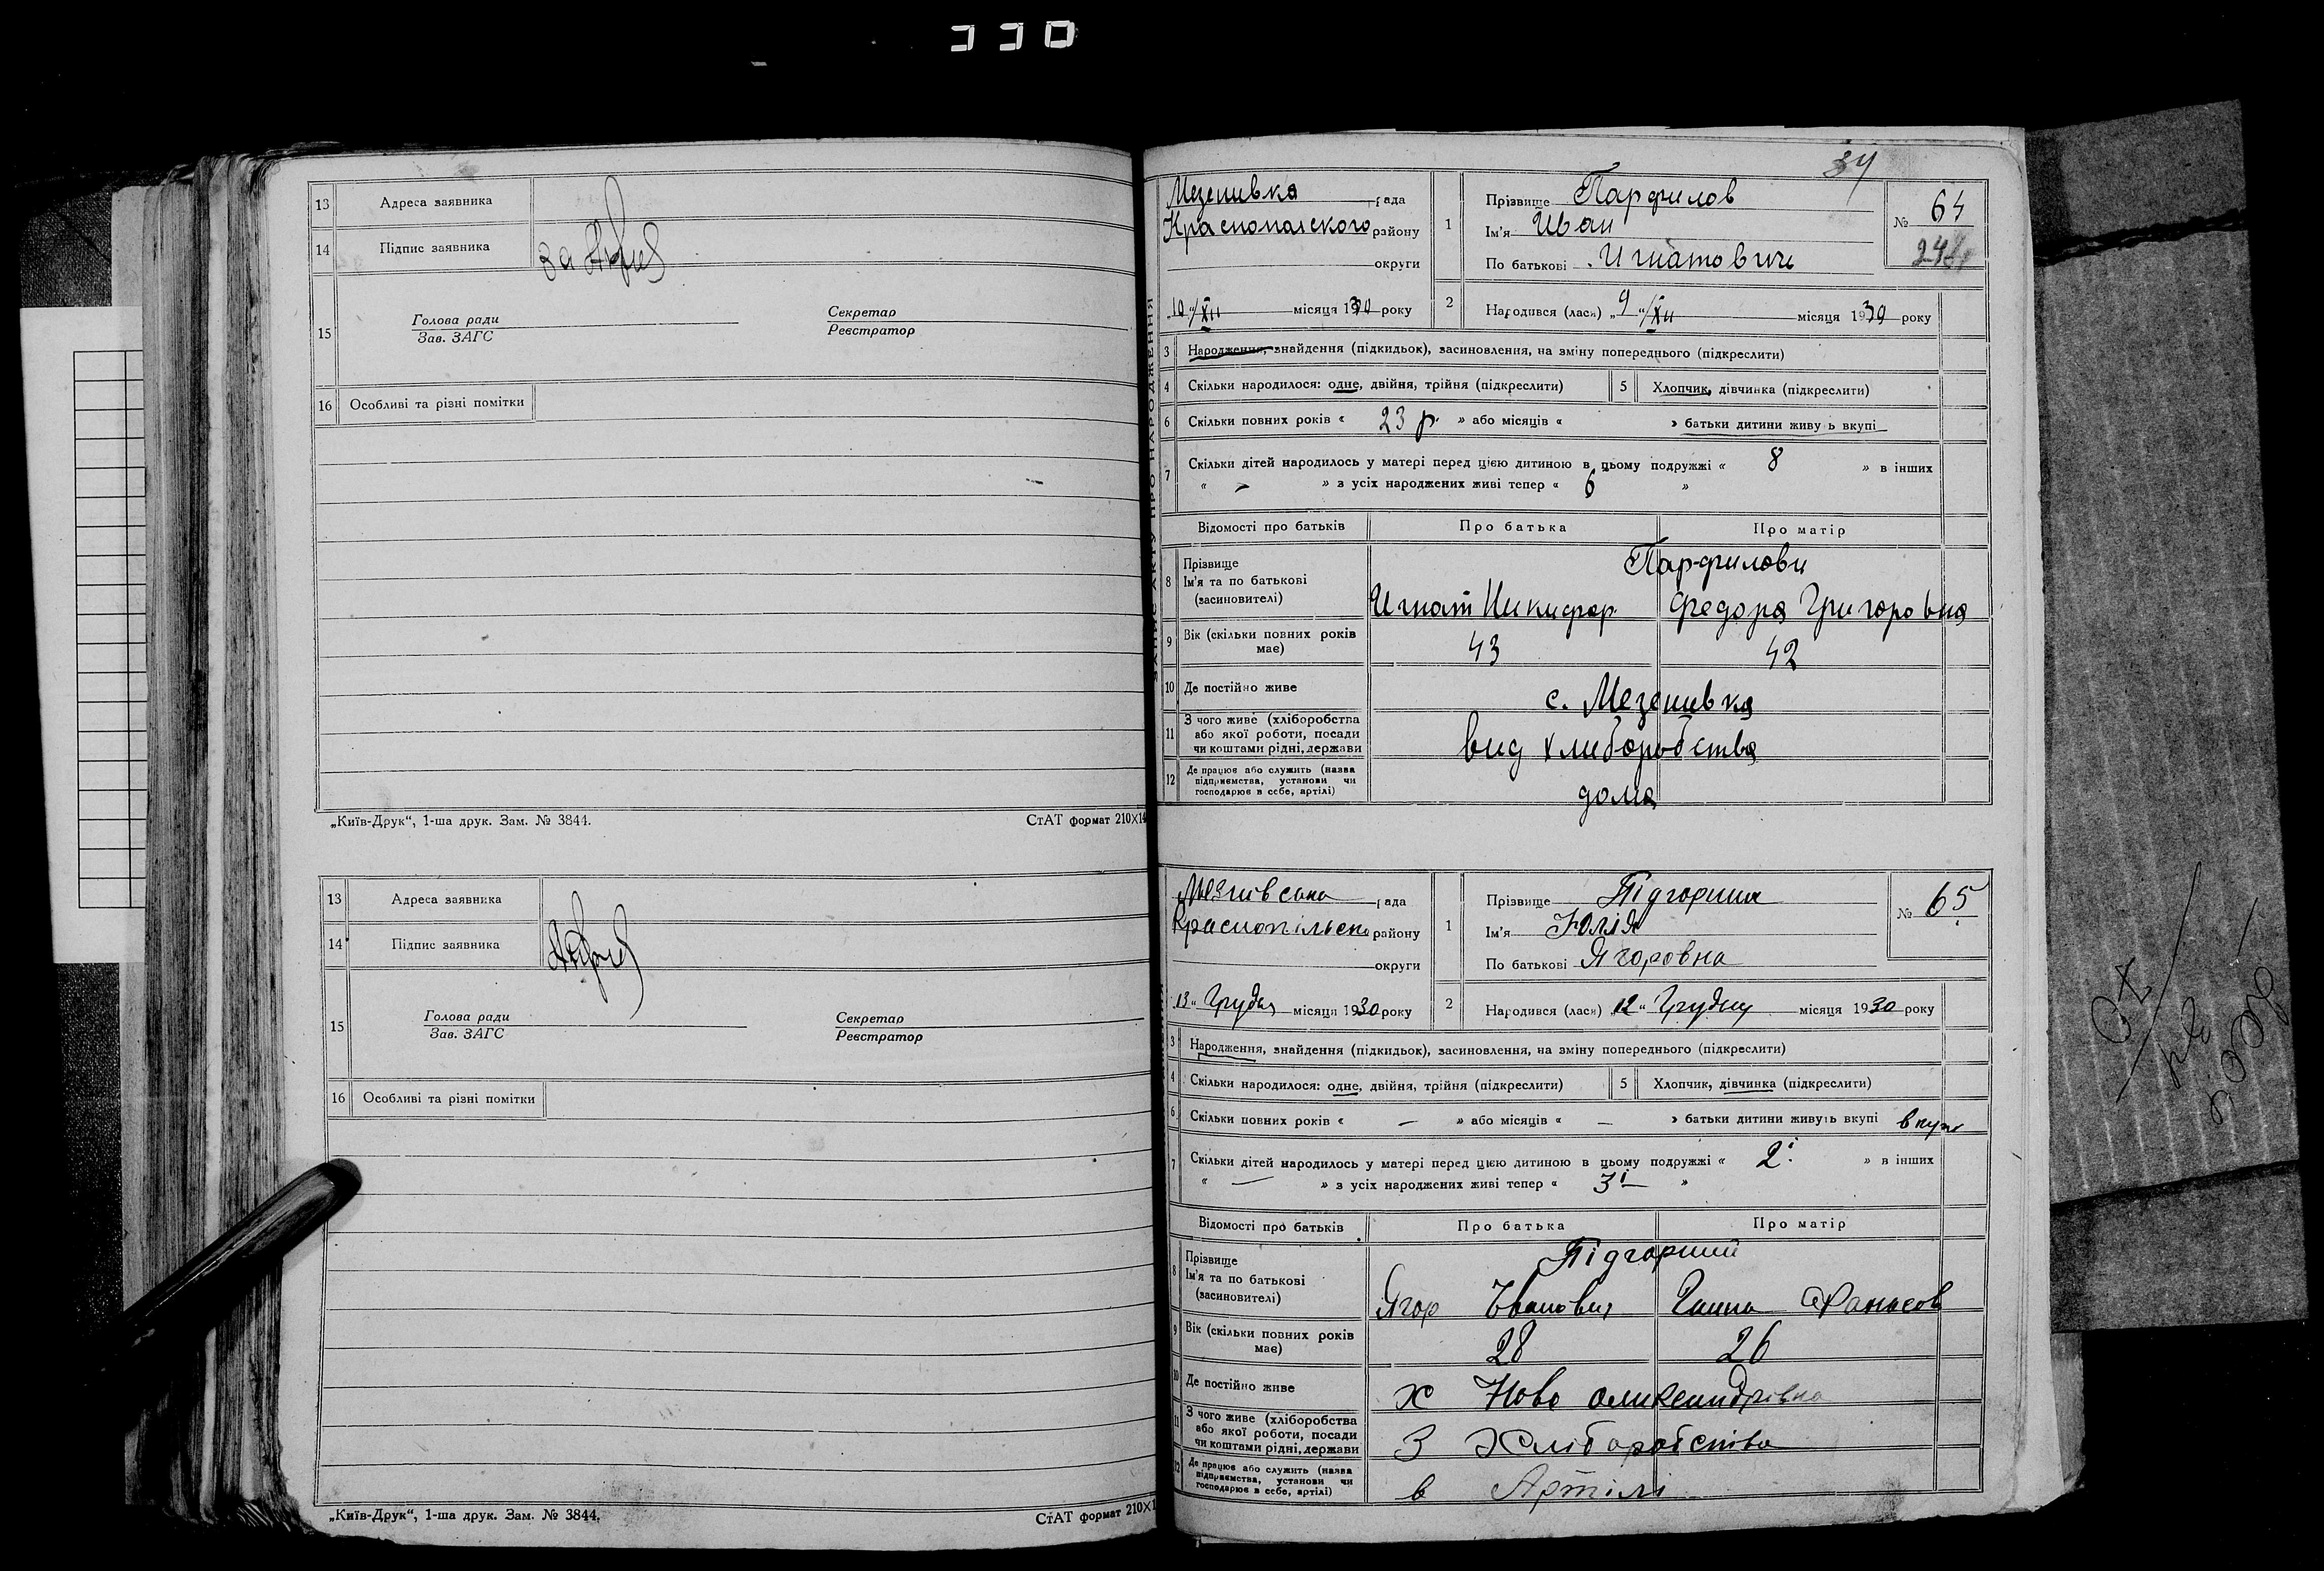 13 Адреса заявника
14 Підпис заявника
за
15 Голова ради
Зав. ЗАГС
Секретар
Реєстратор
16 Особливі та різні помітки
„Київ-Друк“, 1-ша друк. Зам. № 3844.
СтАТ формат 210×14
13 Адреса заявника
14 Підпис заявника
15 Голова ради
Зав. ЗАГС
Секретар
Реєстратор
16 Особливі та різні помітки
„Київ-Друк“, 1-ша друк. Зам. № 3844.
СтАТ формат 210×1
34
Мезенивка рада
Краснополского району
округи
„10“/XII місяця 1930 року
1 Прізвище Парфилов
Ім'я Иван
По батькові Игнатовичь
№ 64
2 Народився (лася) „9“/XII місяця 1930 року
3 Народження, знайдення (підкидьок), засиновлення, на зміну попереднього (підкреслити)
4 Скільки народилося: одне, двійня, трійня (підкреслити) 5 Хлопчик, дівчинка (підкреслити)
6 Скільки повних років « 23 р. » або місяців « » батьки дитини живуть вкупі
7 Скільки дітей народилось у матері перед цією дитиною в цьому подружжі « 8 » в інших
« — » з усіх народжених живі тепер « 6 »
Відомості про батьків Про батька Про матір
8 Прізвище
Ім'я та по батькові
(засиновителі)
Парфилови
Игнат Никифор Федора Григоровна
9 Вік (скільки повних років має) 43 42
10 Де постійно живе с. Мезенивка
11 З чого живе (хліборобства
або якої роботи, посади
чи коштами рідні, держави
вид хлиборобства
12 Де працює або служить (назва
підприємства, установи чи
господарює в себе, артілі)
дома
рада
Краснопільско району
округи
„13“ Грудня місяця 1930 року
1 Прізвище Підгорная
Ім'я Юлія
По батькові Ягоровна
№ 65
2 Народився (лася) „12“ Грудну місяця 1930 року
3 Народження, знайдення (підкидьок), засиновлення, на зміну попереднього (підкреслити)
4 Скільки народилося: одне, двійня, трійня (підкреслити) 5 Хлопчик, дівчинка (підкреслити)
6 Скільки повних років « — » або місяців « — » батьки дитини живуть вкупі вкупі
7 Скільки дітей народилось у матері перед цією дитиною в цьому подружжі « 2 » в інших
« — » з усіх народжених живі тепер « 3 »
Відомості про батьків Про батька Про матір
8 Прізвище
Ім'я та по батькові
(засиновителі)
Підгорний
Ягор Іванович Ганна Фанасов
9 Вік (скільки повних років має) 28 26
10 Де постійно живе х Ново олександрівна
11 З чого живе (хліборобства
або якої роботи, посади
чи коштами рідні, держави
З Хліборобства
12 Де працює або служить (назва
підприємства, установи чи
господарює в себе, артілі)
в Артілі